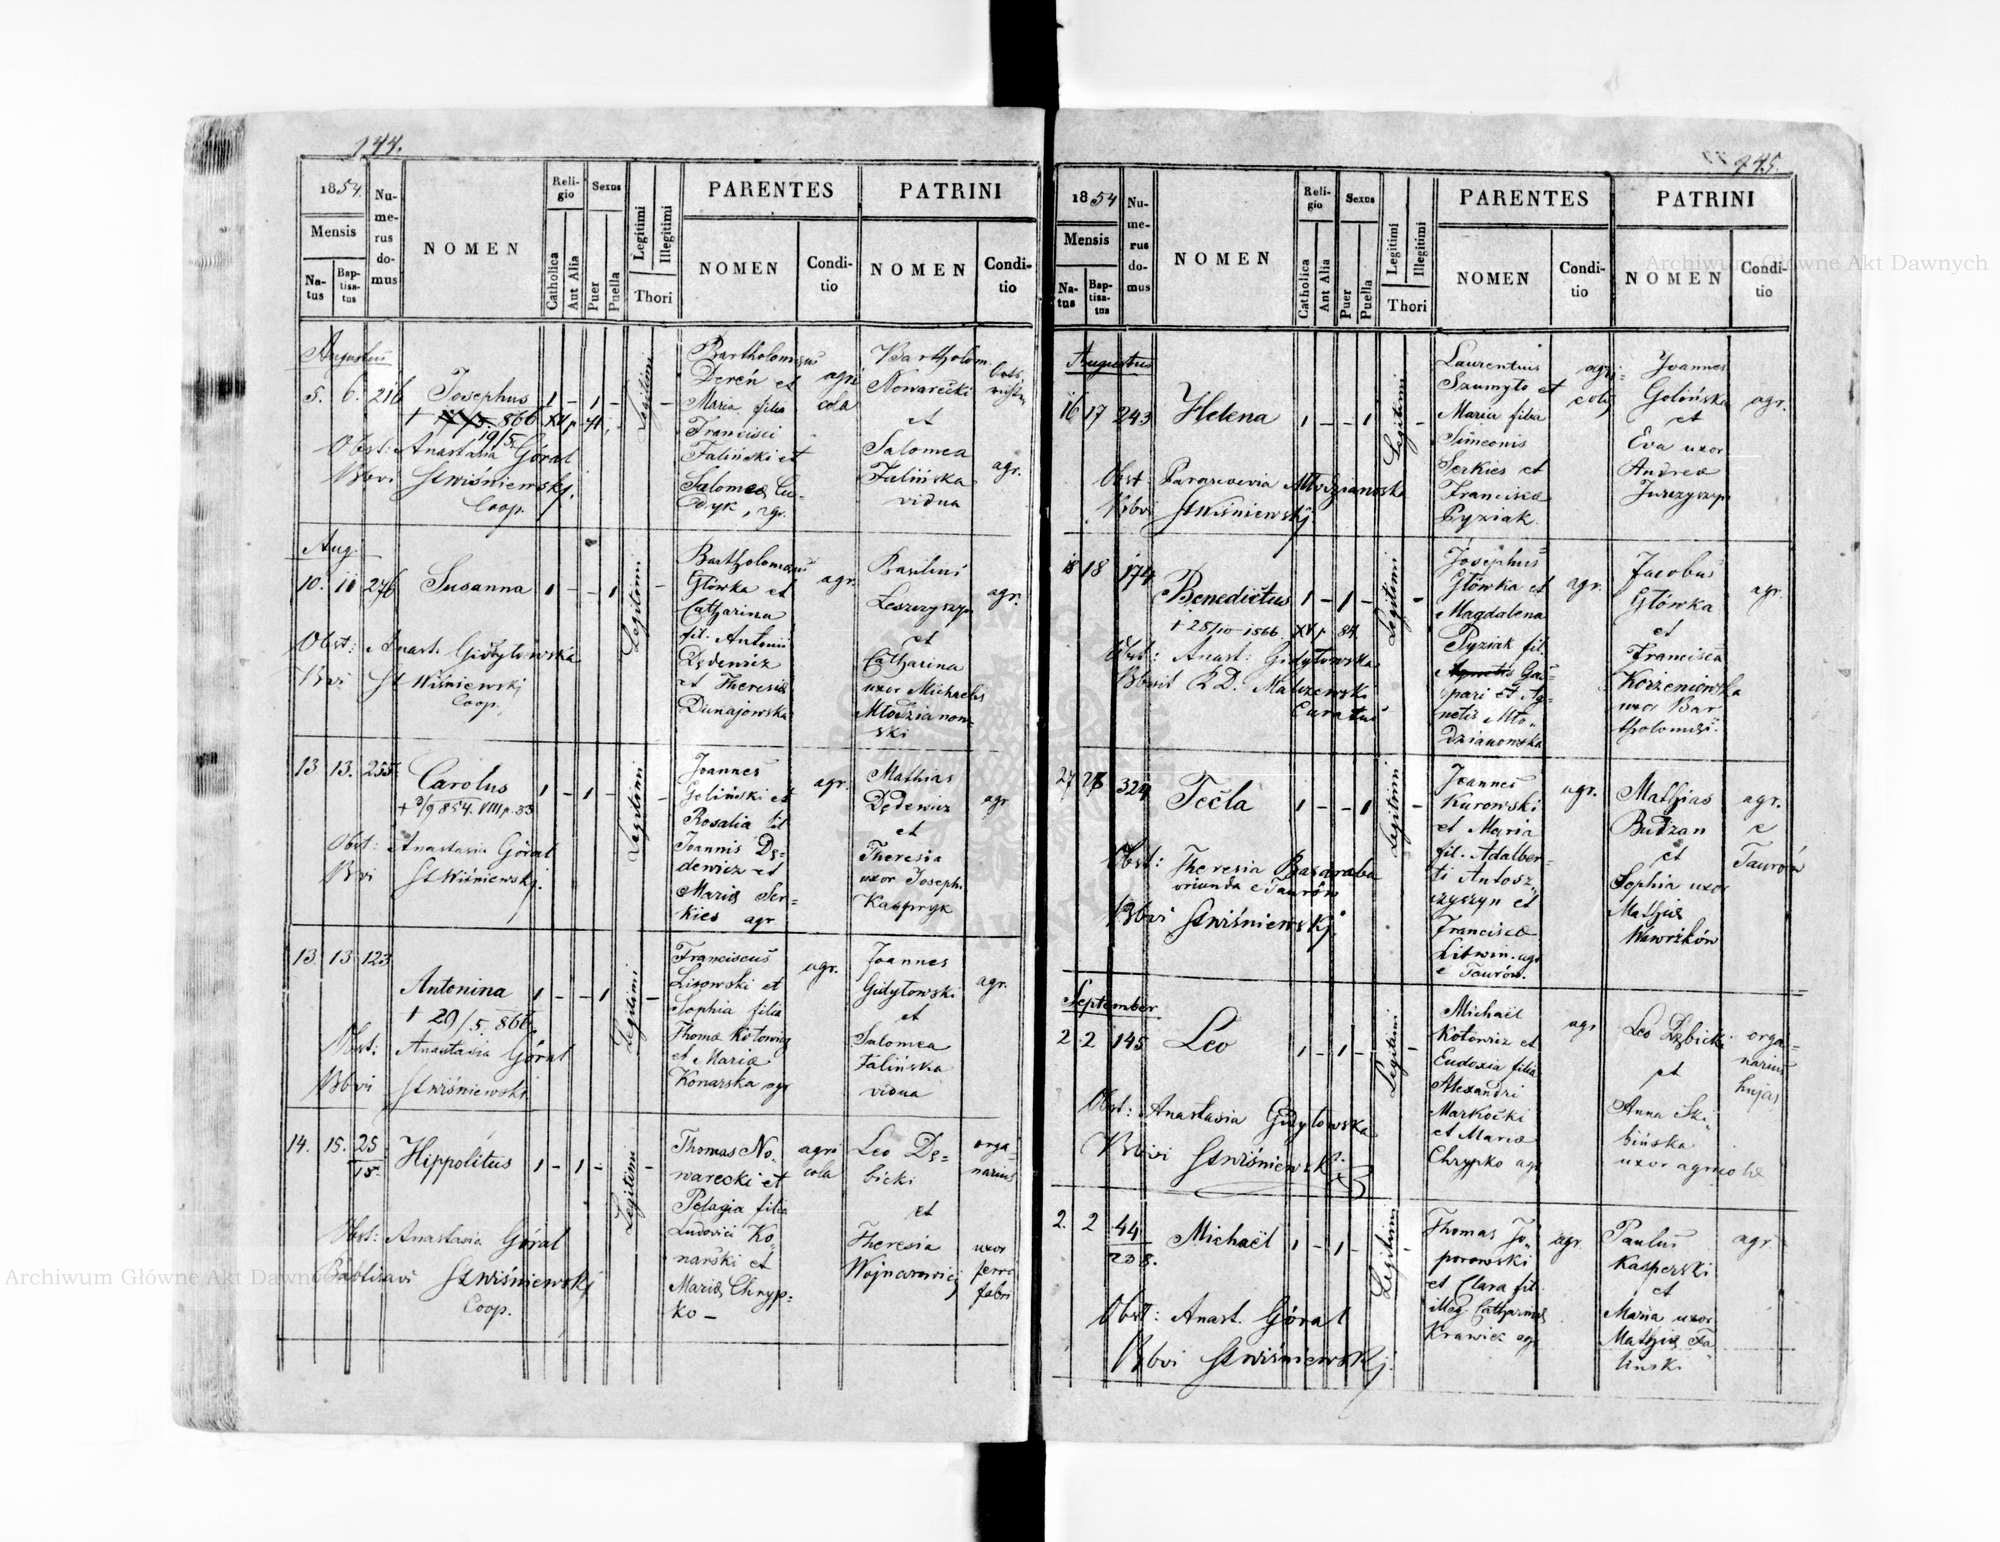 144.
1854.
Mensis
Natus
Baptisatus
Numerus domus
NOMEN
Religio
Catholica
Aut Alia
Sexus
Puer
Puella
Legitimi
Illegitimi
Thori
PARENTES
NOMEN
Conditio
PATRINI
NOMEN
Conditio
Augustus
5. 6. 216 Josephus 1 - 1 -
+ 19/5 866
Obst: Anastasia Góral
Bbvi St Wiśniewski
Coop.
Legitimi
Bartholomeus
Dereń et
Maria filia
Francisci
Faliński et
Salomea
agri
cola
Bartholom.
Nowarecki
et
Salomea
Falińska
vidua
agr.
Aug.
10. 11 276 Susanna 1 - - 1 -
Obst: Anast. Gidytowska
Bbvi St Wiśniewski
Coop.
Legitimi
Bartholomeus
Główka et
Catharina
fil. Antonii
Dędewicz
et Theresia
Dunajowska
agr.
Basilius
Leszczyszyn
et
Catharina
uxor Michaelis
Młodzianow-
ski
agr.
13 13. 255 Carolus 1 - 1 - -
+ 3/9 854. VIII p. 33
Obst: Anastasia Góral
Bbvi St Wiśniewski.
Legitimi
Joannes
Goliński et
Rosalia fil
Joannis Dę-
dewicz et
Maria Ser-
kies agr
agr.
Mathias
Dędewicz
et
Theresia
uxor Joseph.
Kasprzyk
agr
13. 13 123 Antonina 1 - - 1 -
+ 29/5. 866.
Obst: Anastasia Góral
Bbvi St Wiśniewski
Legitimi
Franciscus
Lisowski et
Sophia filia
Thoma Kotowicz
et Maria
Konarska agr
agr.
Joannes
Gidytowski
et
Salomea
Falińska
vidua
agr.
14. 15. 25
15. Hippolitus 1 - 1 - -
Obst: Anastasia Góral
Babtisavi St Wiśniewski
Coop.
Legitimi
Thomas No-
warecki et
Pelagia filia
Ludovici Ko-
narski et
Maria Chryp-
ko -
agri
cola
Leo Dę-
bicki
et
Theresia
Wojnarowicz
orga-
narius
uxor
ferri
fabri
145.
1854
Mensis
Natus
Baptisatus
Numerus domus
NOMEN
Religio
Catholica
Aut Alia
Sexus
Puer
Puella
Legitimi
Illegitimi
Thori
PARENTES
NOMEN
Conditio
PATRINI
NOMEN
Conditio
Augustus
16 17 243 Helena 1 - - 1 -
Obst: Parascevia Młodzianoska
Bbvi St Wiśniewski
Legitimi
Laurentius
Szumyło et
Maria filia
Simeonis
Serkies et
Francisca
Pyziak.
agri-
cola
Joannes
Golińska
et
Eva uxor
Andrea
Jurczyszyn
agr.
18 18 174 Benedictus 1 - 1 - -
+ 28/10 1866. XV p 84.
Obst: Anast: Gidytowska
Bbvit RD. Maliszewski
Curatus
Legitimi
Josephus
Główka et
Magdalena
Pyziak fil.
Agnetis Gas-
pari et Ag-
netis Mło-
dzianowska
agr.
Jacobus
Główka
et
Francisca
Korzeniowska
uxor Bar
tholomei.
agr.
27 28 324 Tecla 1 - - 1 -
Obst: Theresia Basaraba
oriunda e Taurów
Bbvi St Wiśniewski
Legitimi
Joannes
Kurowski
et Maria
fil. Adalber-
ti Antosz-
czyszyn et
Francisca
Litwin agr
e Taurów.
agr.
Mathias
Budzan
et
Sophia uxor
Mathia
Wawrzków
agr.
e
Taurów
September
2. 2 145 Leo 1 - 1 - -
Obst: Anastasia Gidytowska
Bbvi St Wiśniewski
Legitimi
Michaël
Kotowicz et
Eudoxia filia
Alexandri
Markocki
et Maria
Chrypko agr
agr
Leo Dębicki
et
Anna Ski-
bińska
uxor agricola
orga-
narius
hujas
2. 2 44
208. Michaël 1 - 1 - -
Obst: Anast. Góral
Bbvi St Wiśniewski.
Legitimi
Thomas To-
porowski
et Clara fil.
illeg. Catharina
Krawiec agr
agr.
Paulus
Kasperski
et
Maria uxor
Mathia Fa-
linski
agr.
Archiwum Główne Akt Dawnych
Archiwum Główne Akt Dawnych